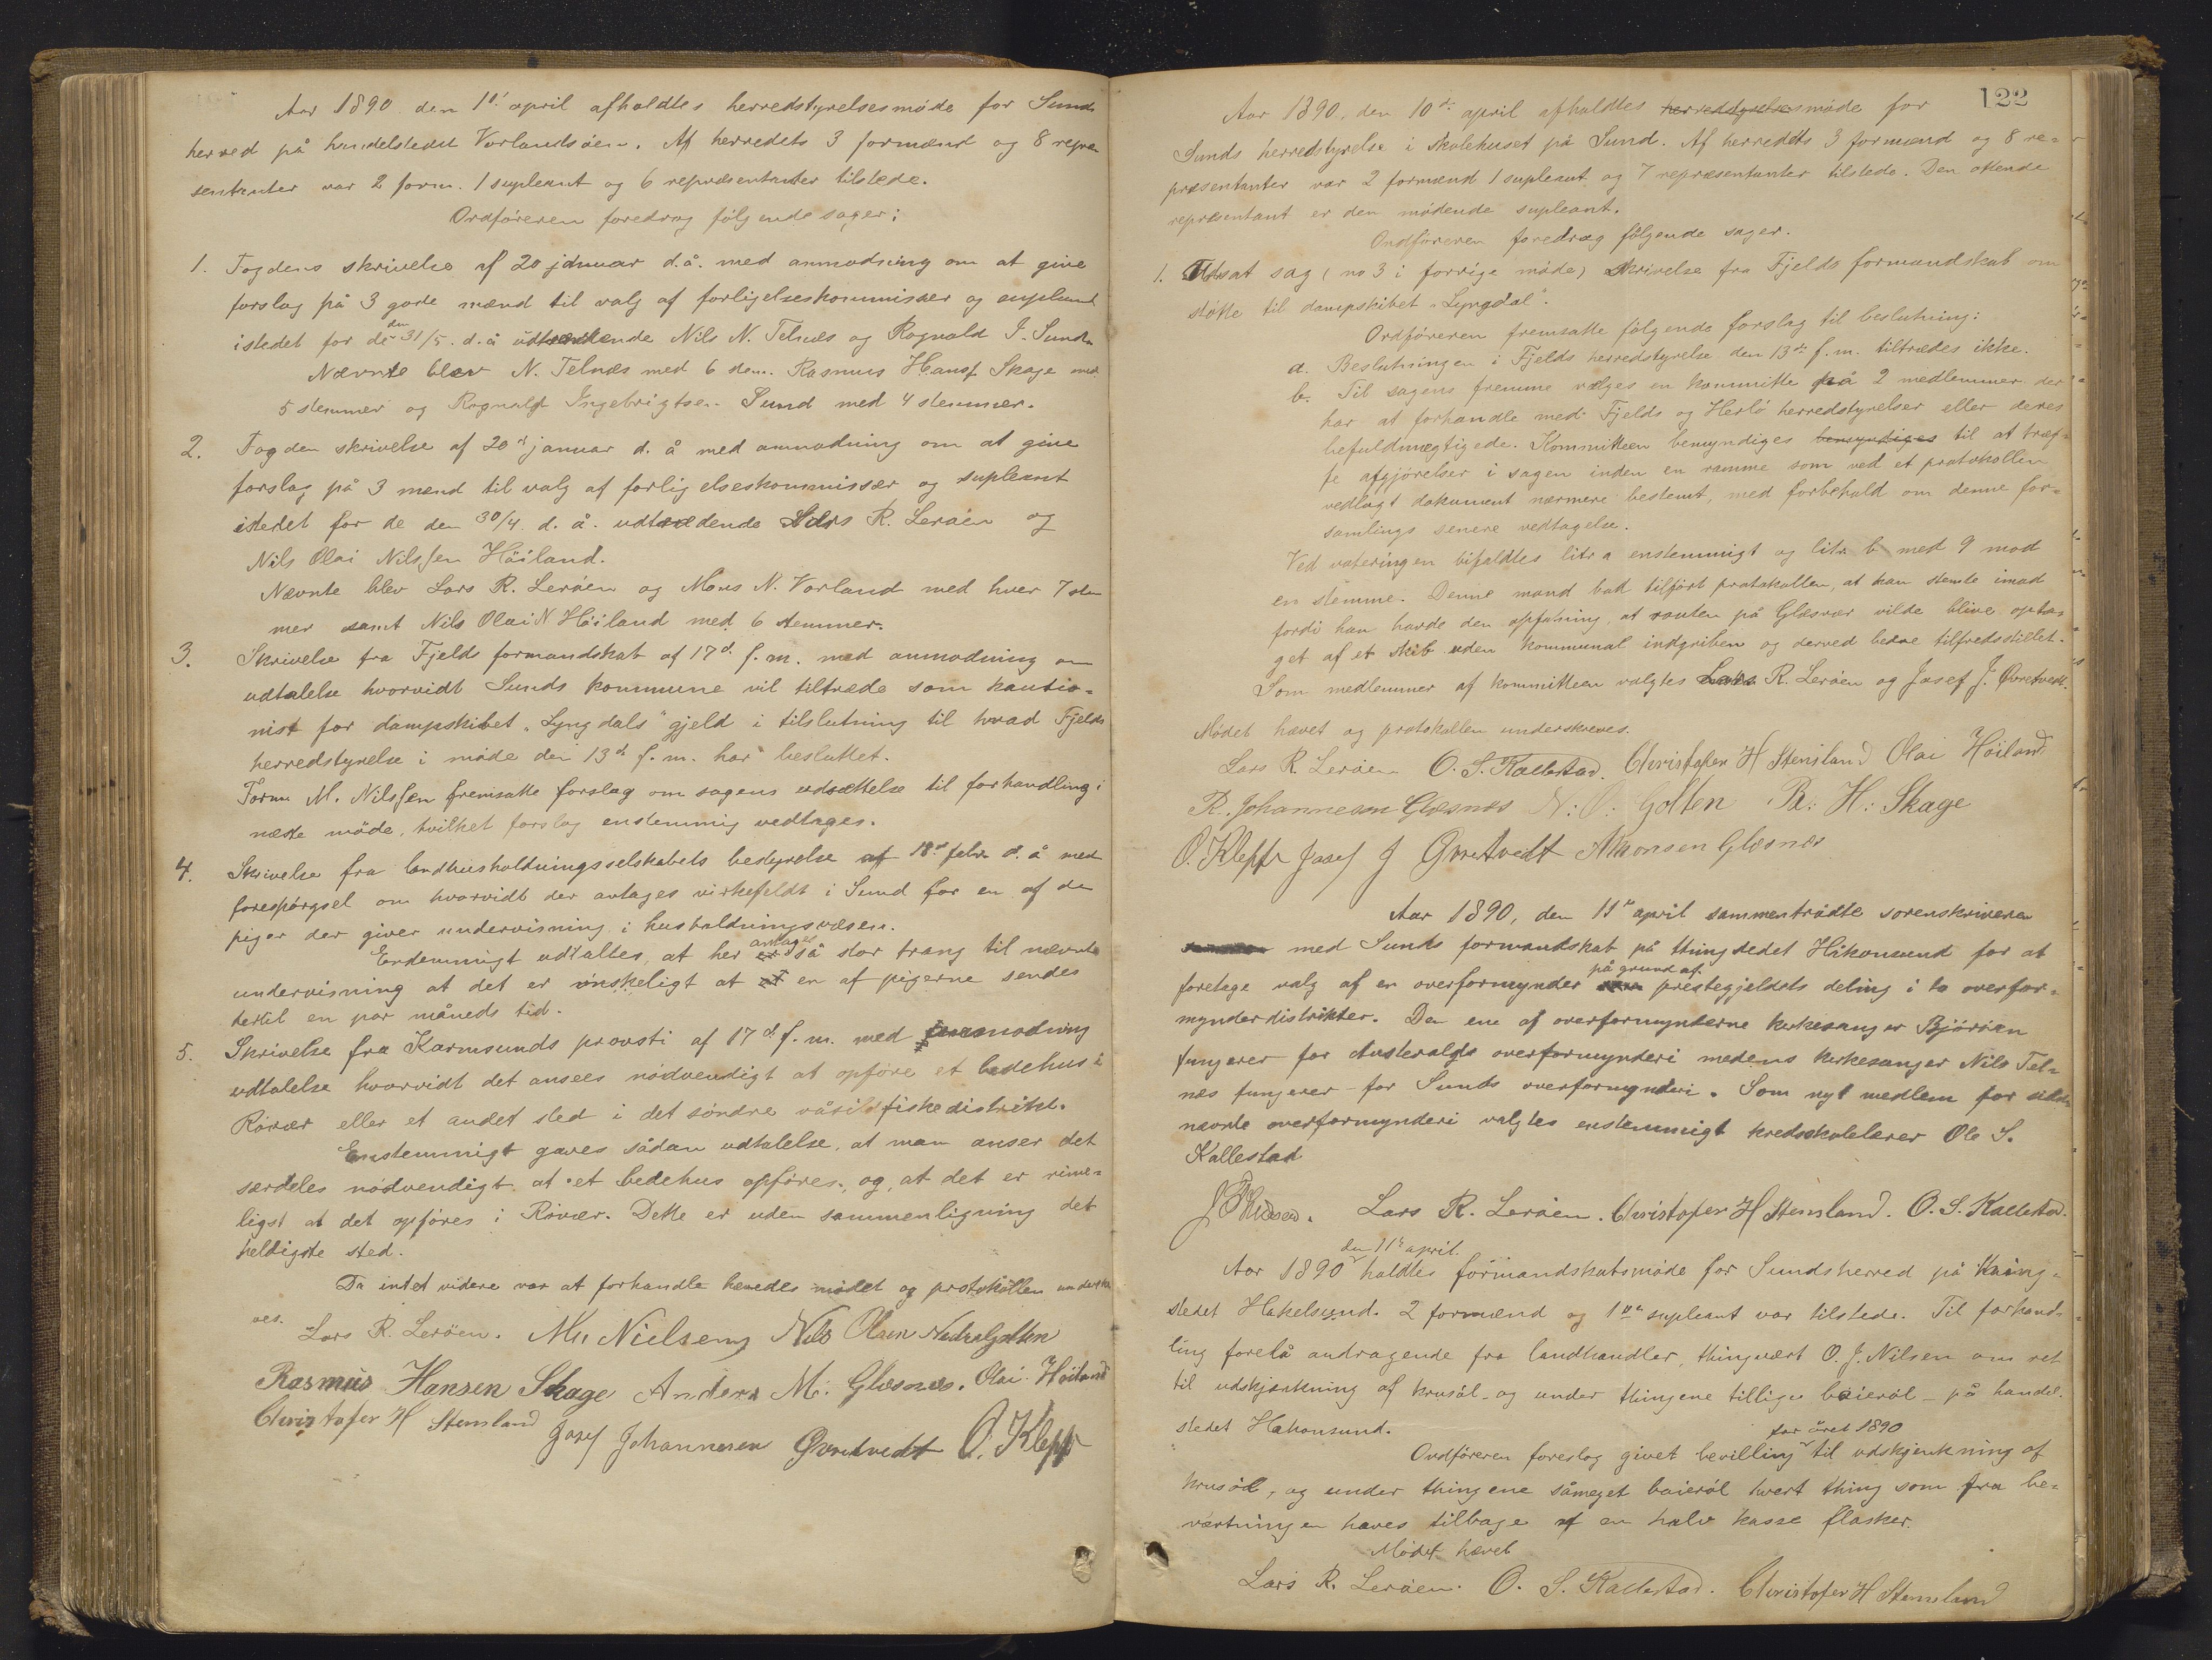 Aar 1890 den 1ste april afholdtes herredstyrelsesmöde for Sunds
herred på handelstedet Vorlandsöen. Af herredets 3 formænd og 8 repræ
sentanter var 2 form. 1 supleant og 6 repræsentanter tilstede.
Ordföreren foredrog fölgende sager:
1. Fogdens skrivelse af 20 januar d.å. med anmodning om at give
forslag på 3 gode mænd til valg af forligelseskommissær og supleant
istedet for de den 31/5. d.å udtrædende Nils N. Telnæs og Rognald I. Sund.
Nævnte blev N. Telnæs med 6 stem. Rasmus Hansf. Skage med
5 stemmer og Rognald Ingebrigtsen Sund med 4 stemmer.
2. Fogden skrivelse af 20d januar d. å med anmodning om at give
forslag på 3 mænd til valg af forligelseskommissær og supleant
istedet for de den 30/4. d. å. udtrædende Lars R. Leröen og
Nils Olai Nilssen Höiland.
Nævnte blev Lars R. Leröen og Mons N. Vorland med hver 7 stem
mer samt Nils Olai N Höiland med 6 stemmer.
3. Skrivelse fra Fjelds formandskab af 17d. f.m. med anmodning om
udtalelse hvorvidt Sunds kommune vil tiltræde som kautio=
nist for dampskibet "Lyngdals" gjeld i tilslutning til hvad Fjelds
herredstyrelse i möde den 13d f.m. har besluttet.
Form M. Nilssen fremsatte forslag om sagens udsættelse til forhandling i
næste möde, hvilket forslag enstemmig vedtages.
4. Skrivelse fra landhusholdningsselskabets bestyrelse af 18d febr. d. å med
forespörgsel om hvorvidt der antages virkefeldt i Sund for en af de
piger der giver undervisning i husholdningsvæsen.
Endemmigt udtaltes, at her er antages så stor trang til nævnte
undervisning at det er önskeligt at en af pigerne sendes
hertil en par måneds tid.
5. Skrivelse fra Karmsunds provsti af 17d. f.m. med anmodning
udtalelse hvorvidt det ansees nödvendigt at opföre et bedehus i
Rövær eller et andet sted i det söndre vårsildfiskedistrikt.
Enstemmigt gaves sådan udtalelse, at man anser det
særdeles nödvendigt at et bedehus opföres, og, at det er rime=
ligst at det opföres i Rövær. Dette er uden sammenligning det
heldigste sted.
Da intet videre var at forhandle hævedes mödet og protokollen underskre
ves.
Lars R. Leröen. Ms Nielsen Nils Olsen Nedregolten
Rasmus Hansen Skage Anders M: Glæsnes. Olai Höiland
Christofer H Stensland Josef Johannesen Övretvedt O. Klepp
122
Aar 1890, den 10de april afholdtes herredstyrelsesmöde for
Sunds herredstyrelse i skolehuset på Sund. Af herredets 3 formænd og 8 re=
præsentanter var 2 formænd 1 supleant og 7 repræsentanter tilstede. Den ottende
repræsentant er den mödende supleant.
Ordföreren foredrog fölgende sager.
1. Udsat sag (no 3 i forrige möde) Skrivelse fra Fjelds formandskab om
stötte til dampskibet "Lyngdal".
Ordföreren fremsatte fölgende forslag til beslutning:
a. Beslutningen i Fjelds herredstyrelse den 13de f.m. tiltrædes ikke.
b. Til sagens fremme vælges en kommitte på 2 medlemmer der
har at forhandle med Fjelds og Herlö herredstyrelser eller deres
befuldmægtigede. Kommitteen bemyndiges bemyndiges til at træf=
fe afgjörelser i sagen inden en ramme som ved et protokollen
vedlagt dokument nærmere bestemt, med forbehold om denne for=
samlings senere vedtagelse.
Ved voteringen bifaldtes litr a enstemmigt og litr. b med 9 mod
en stemme. Denne mand bad tilfört protokollen, at han stemte imod
fordi han havde den opfatning, at routen på Glæsvær vilde blive opta=
get af et skib uden kommunal indgriben og derved bedre tilfredsstillet.
Som medlemmer af kommitteen valgtes Lars R. Leröen og Josef J. Övretvedt.
Mödet hævet og protokollen underskreves.
Lars R. Leröen O. S. Kallestad. Christofer H Stensland Olai Höiland
R. Johannesen Glæsnes N: O: Golten R: H: Skage
O. Klepp Josef J Övretvedt A Monsen Glæsnes
Aar 1890, den 11te april sammentrådte sorenskriveren
med Sunds formandskab på thingstedet Håkonsund for at
foretage valg af en overformynder på grund af prestegjeldets deling i to overfor=
mynderdistrikter. Den ene af overformynderne kirkesanger Björöen
fungerer for Austevolds overformynderi medens kirkesanger Nils Tel=
næs fungerer for Sunds overformynderi. Som nyt medlem for sidst
nævnte overformynderi valgtes enstemmigt kredsskolelærer Ole S.
Kallestad
Lars R. Leröen. Christofer H Stensland. O. S. Kallestad.
Aar 1890 den 11te april. holdtes formandskabsmöde for Sundsherred på thing=
stedet Hakelsund. 2 formænd og 1ste supleant var tilstede. Til forhand=
ling forelå andragende fra landhandler, thingvært O. J. Nilsen om ret
til udskjænkning af krusöl - og under thingene tillige baieröl - på handel.
stedet Hakonsund.
Ordföreren foreslog givet bevilling for året 1890 til udskjenkning af
krusöl, og under thingene såmeget baieröl hvert thing som fra be=
værtningen haves tilbage af en halv kasse flasker.
Mödet hævet
Lars R. Leröen. O. S. Kallestad. Christofer H Stensland